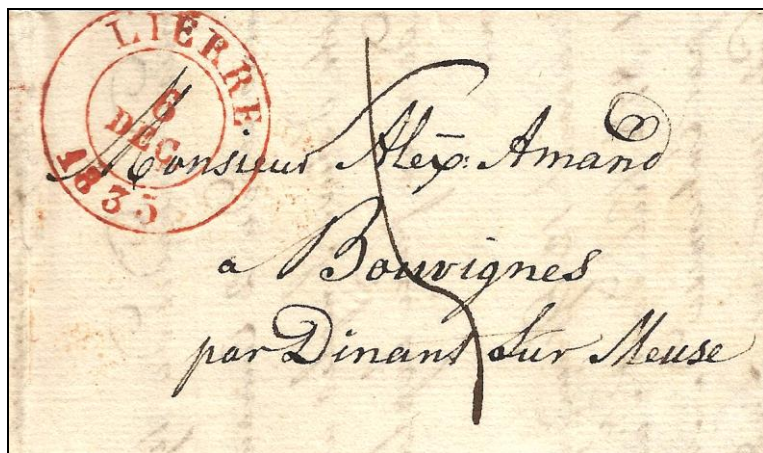 LIERRE
6
DEC.
1835
Monsieur Alex: Amand
a Bouvignes
par Dinant Sur Meuse